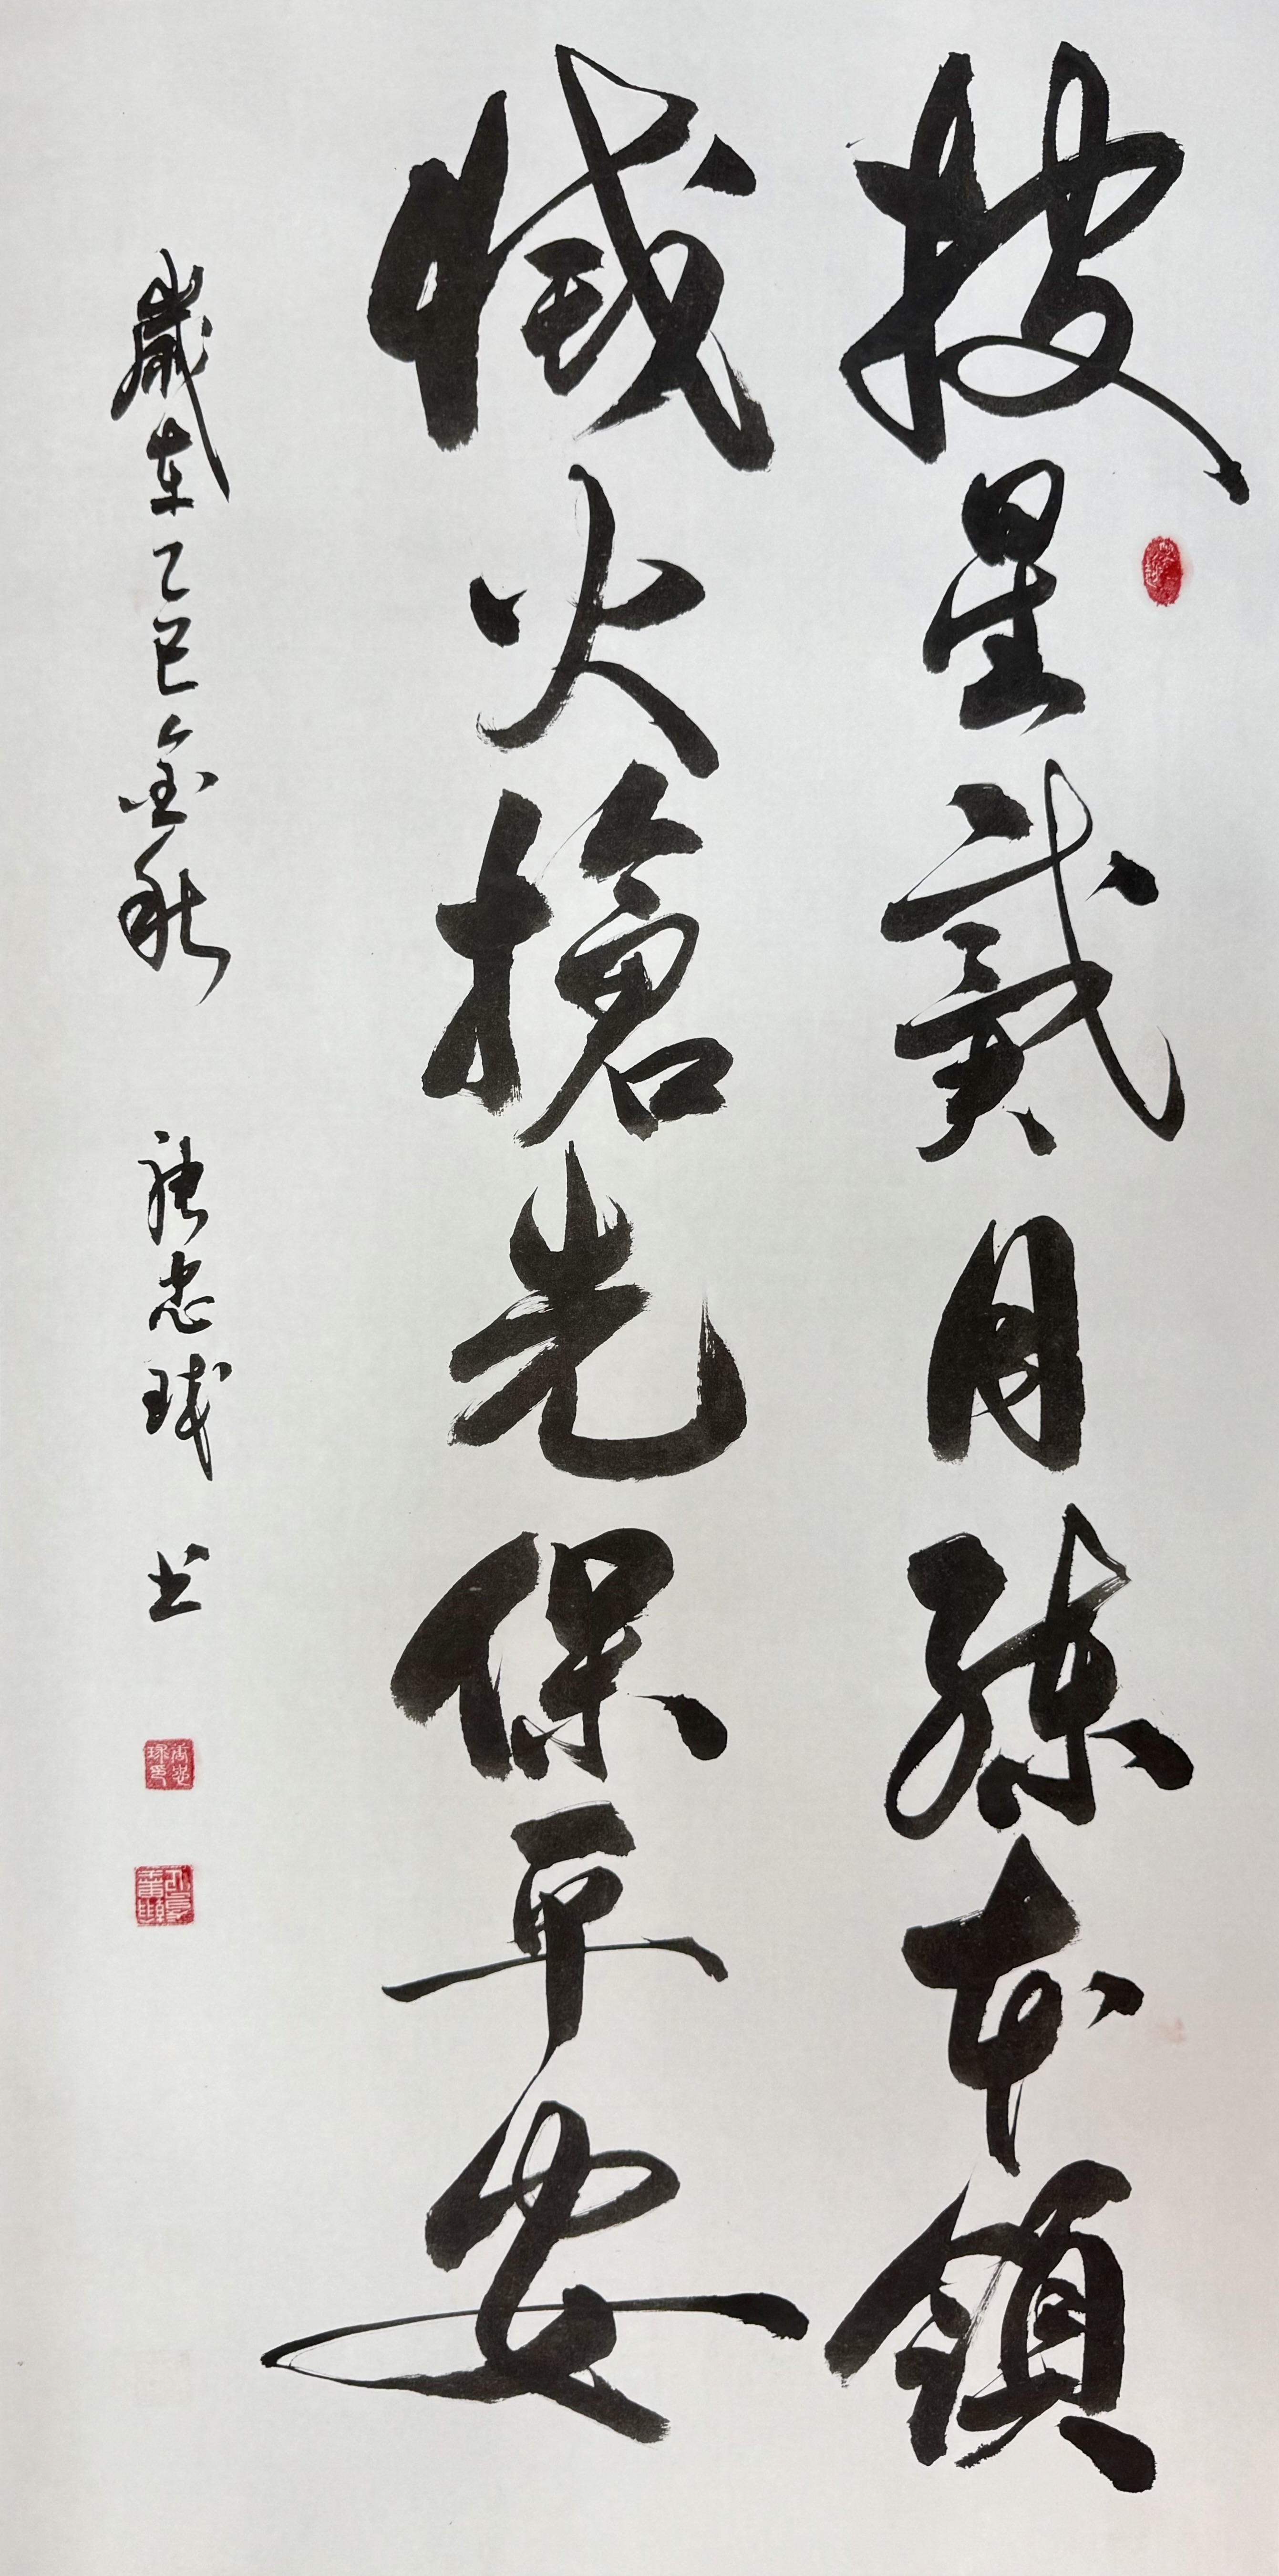 披星戴月練本領
滅火搶先保平安
歲在乙巳金秋 張忠球 书